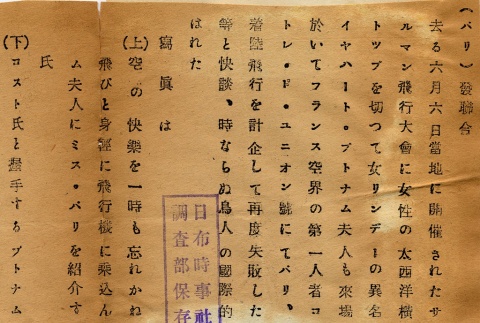 (パリ)發聯合
去る六月六日當地に開催されたサ
ルマン飛行大會に女性の太西洋横
トツプを切つて女リンデーの異名
イヤハート・プトナム夫人も來場
於いてフランス空界の第一人者コ
トレ・ド・ユニオン號にてパリ、
着陸飛行を計企して再度失敗した
等と快談、時ならぬ鳥人の國際的
はれた
寫眞は
(上)空の快樂を一時も忘れかね
飛びと身輕に飛行機に乘込ん
ム夫人にミス・パリを紹介す
氏
(下)コスト氏と握手するプトナム
日布時事社
調査部保存